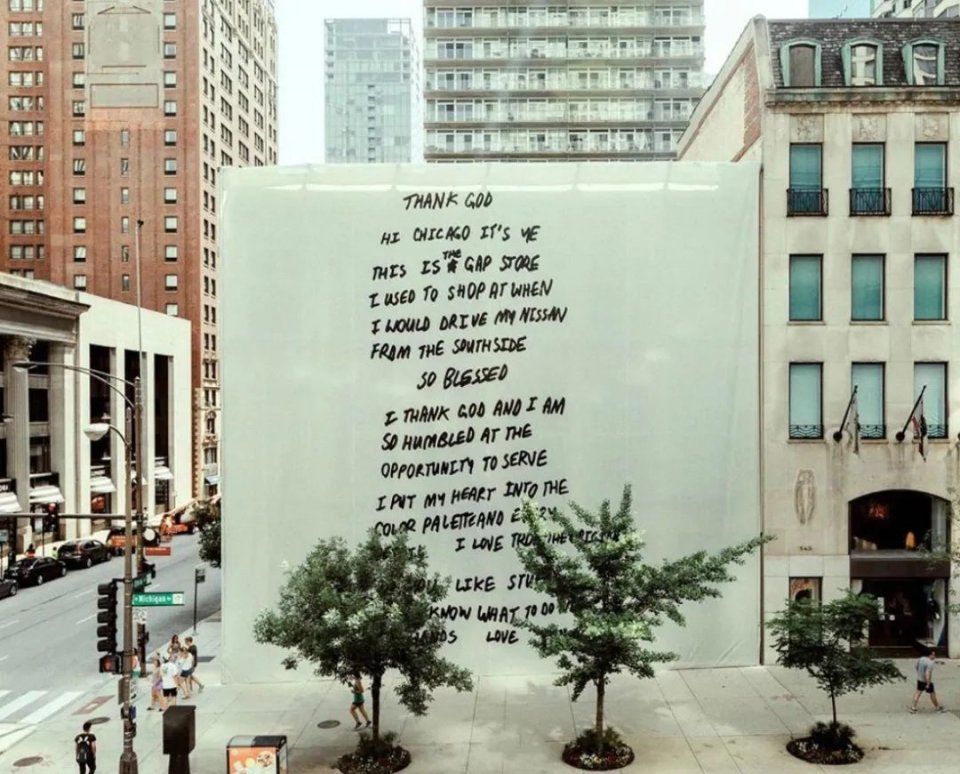 THANK GOD
HI CHICAGO IT'S YE
THIS IS THE GAP STORE
I USED TO SHOP AT WHEN
I WOULD DRIVE MY NISSAN
FROM THE SOUTHSIDE
SO BLESSED
I THANK GOD AND I AM
SO HUMBLED AT THE
OPPORTUNITY TO SERVE
I PUT MY HEART INTO THE
COLOR PALETTE AND
I LOVE
LIKE
KNOW WHAT TO DO
LOVE
Michigan Av